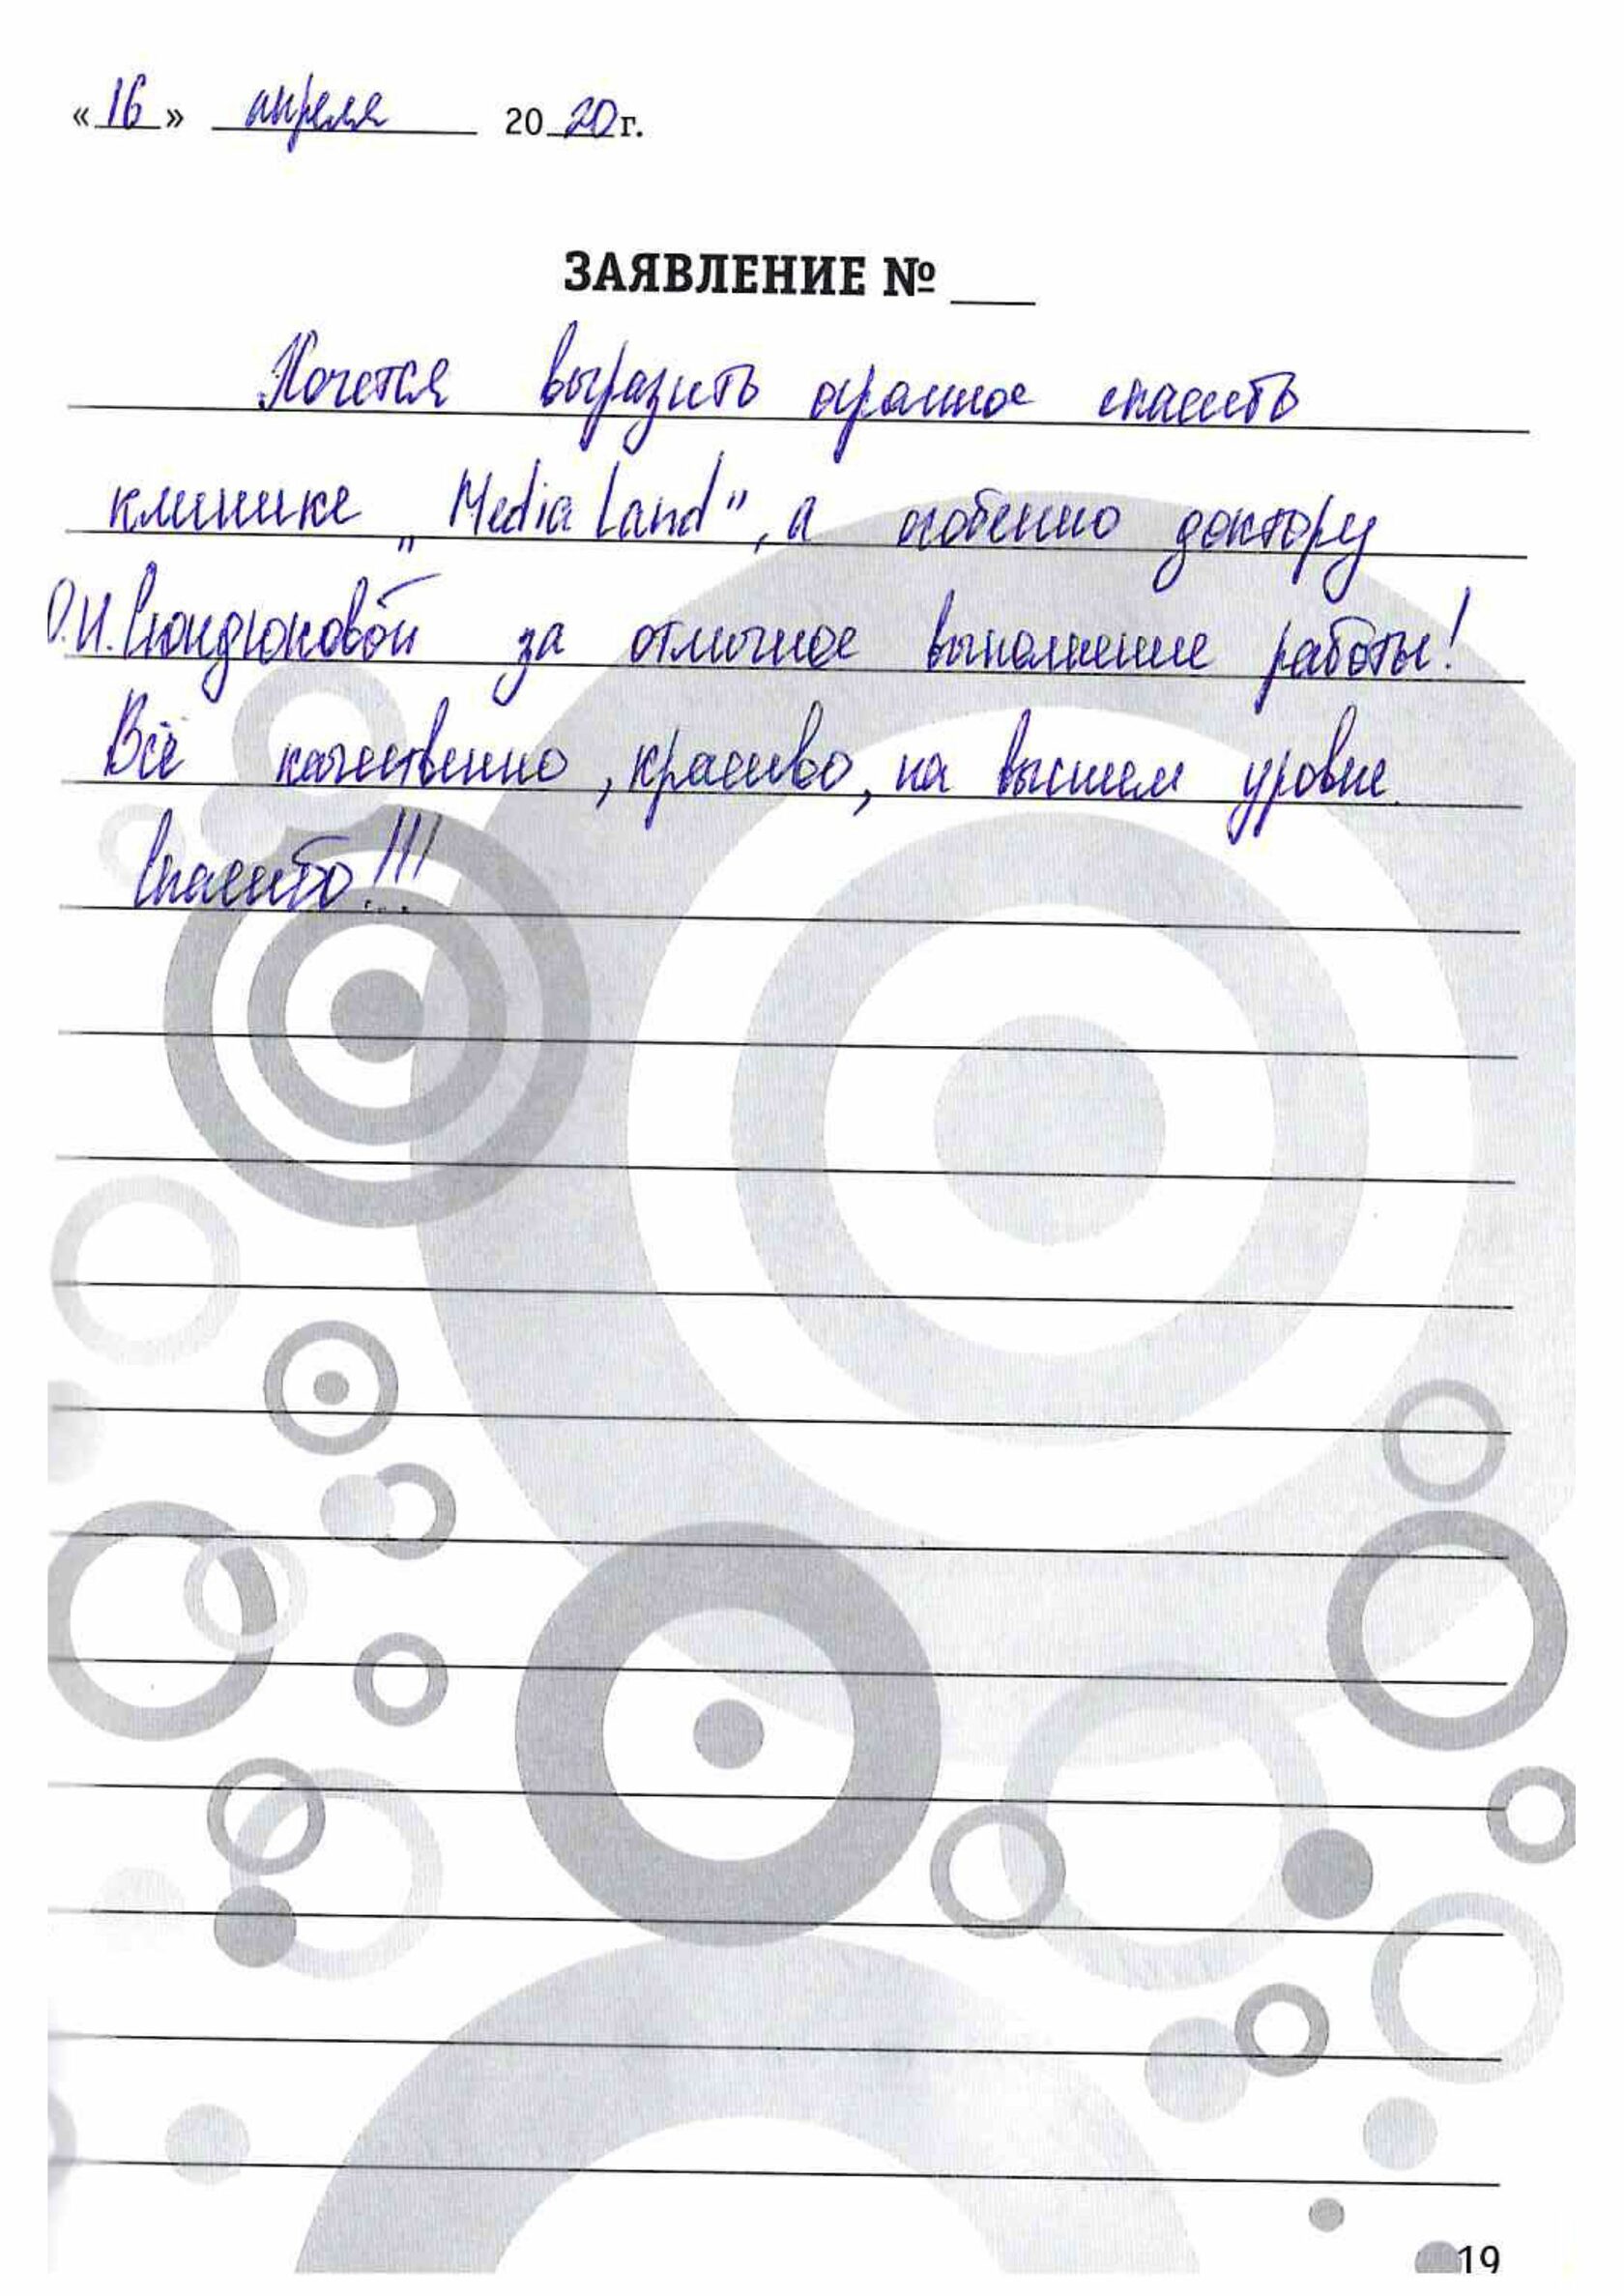 «16» апреля 2020 г.
ЗАЯВЛЕНИЕ № ___
Хочется выразить огромное спасибо
клинике „Media Land", а особенно доктору
О.И. Сюндюковой за отличное выполнение работы!
Всё качественно, красиво, на высшем уровне.
Спасибо!!!
19